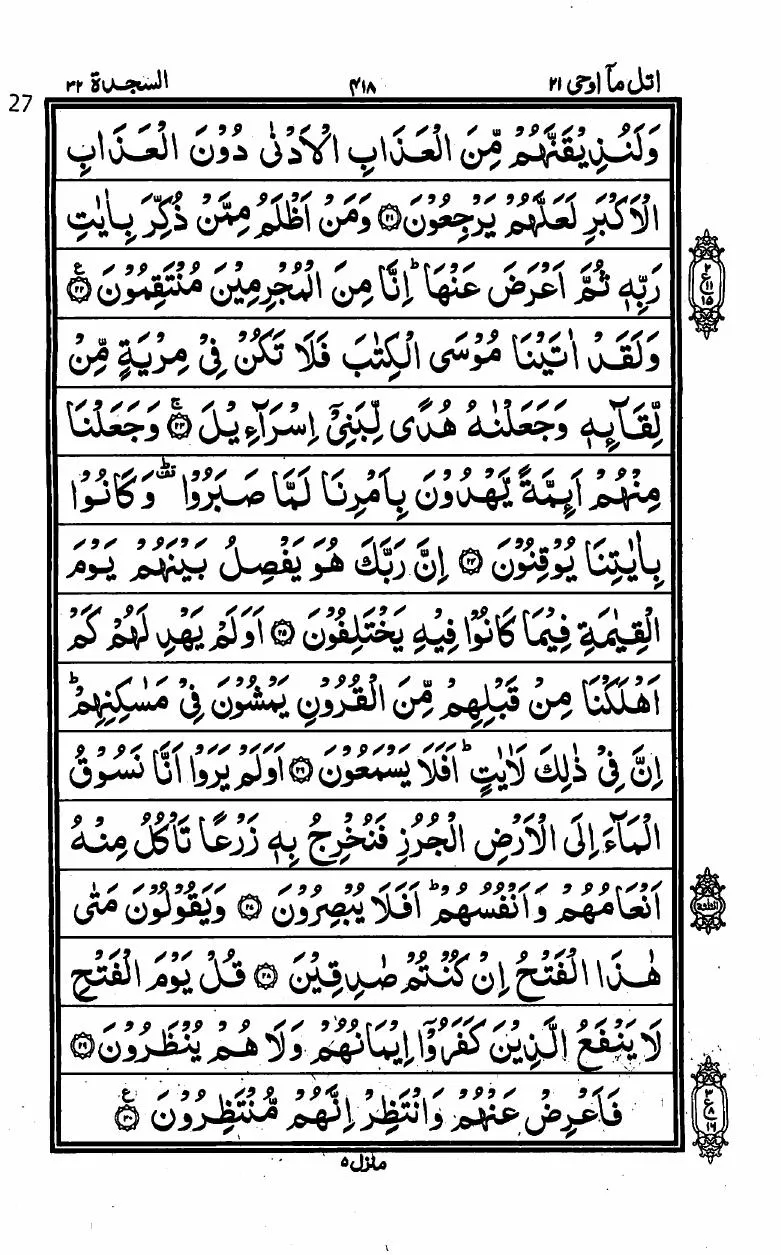 اتل مآ اوحی ۲۱
۴۱۸
السجدة ۳۲
27
وَلَنُذِيۡقَنَّهُمۡ مِّنَ الۡعَذَابِ الۡاَدۡنٰى دُوۡنَ الۡعَذَابِ
الۡاَكۡبَرِ لَعَلَّهُمۡ يَرۡجِعُوۡنَ ۲۱ وَمَنۡ اَظۡلَمُ مِمَّنۡ ذُكِّرَ بِاٰيٰتِ
رَبِّهٖ ثُمَّ اَعۡرَضَ عَنۡهَا ؕ اِنَّا مِنَ الۡمُجۡرِمِيۡنَ مُنۡتَقِمُوۡنَ ۲۲ ع
وَلَقَدۡ اٰتَيۡنَا مُوۡسَى الۡكِتٰبَ فَلَا تَكُنۡ فِىۡ مِرۡيَةٍ مِّنۡ
لِّقَآٮِٕهٖ وَجَعَلۡنٰهُ هُدًى لِّبَنِىۡۤ اِسۡرَآءِيۡلَ ۲۳ ۚ وَجَعَلۡنَا
مِنۡهُمۡ اَٮِٕمَّةً يَّهۡدُوۡنَ بِاَمۡرِنَا لَمَّا صَبَرُوۡا ؕ قف وَكَانُوۡا
بِاٰيٰتِنَا يُوۡقِنُوۡنَ ۲۴ اِنَّ رَبَّكَ هُوَ يَفۡصِلُ بَيۡنَهُمۡ يَوۡمَ
الۡقِيٰمَةِ فِيۡمَا كَانُوۡا فِيۡهِ يَخۡتَلِفُوۡنَ ۲۵ اَوَلَمۡ يَهۡدِ لَهُمۡ كَمۡ
اَهۡلَكۡنَا مِنۡ قَبۡلِهِمۡ مِّنَ الۡقُرُوۡنِ يَمۡشُوۡنَ فِىۡ مَسٰكِنِهِمۡ ؕ
اِنَّ فِىۡ ذٰلِكَ لَاٰيٰتٍ ؕ اَفَلَا يَسۡمَعُوۡنَ ۲۶ اَوَلَمۡ يَرَوۡا اَنَّا نَسُوۡقُ
الۡمَآءَ اِلَى الۡاَرۡضِ الۡجُرُزِ فَنُخۡرِجُ بِهٖ زَرۡعًا تَاۡكُلُ مِنۡهُ
اَنۡعَامُهُمۡ وَاَنۡفُسُهُمۡ ؕ اَفَلَا يُبۡصِرُوۡنَ ۲۷ وَيَقُوۡلُوۡنَ مَتٰى
هٰذَا الۡفَتۡحُ اِنۡ كُنۡتُمۡ صٰدِقِيۡنَ ۲۸ قُلۡ يَوۡمَ الۡفَتۡحِ
لَا يَنۡفَعُ الَّذِيۡنَ كَفَرُوۡۤا اِيۡمَانُهُمۡ وَلَا هُمۡ يُنۡظَرُوۡنَ ۲۹
فَاَعۡرِضۡ عَنۡهُمۡ وَانۡتَظِرۡ اِنَّهُمۡ مُّنۡتَظِرُوۡنَ ۳۰ ع
۲
ع
۱۱
۱۵
۳
ع
۸
۱۶
منزل ۵